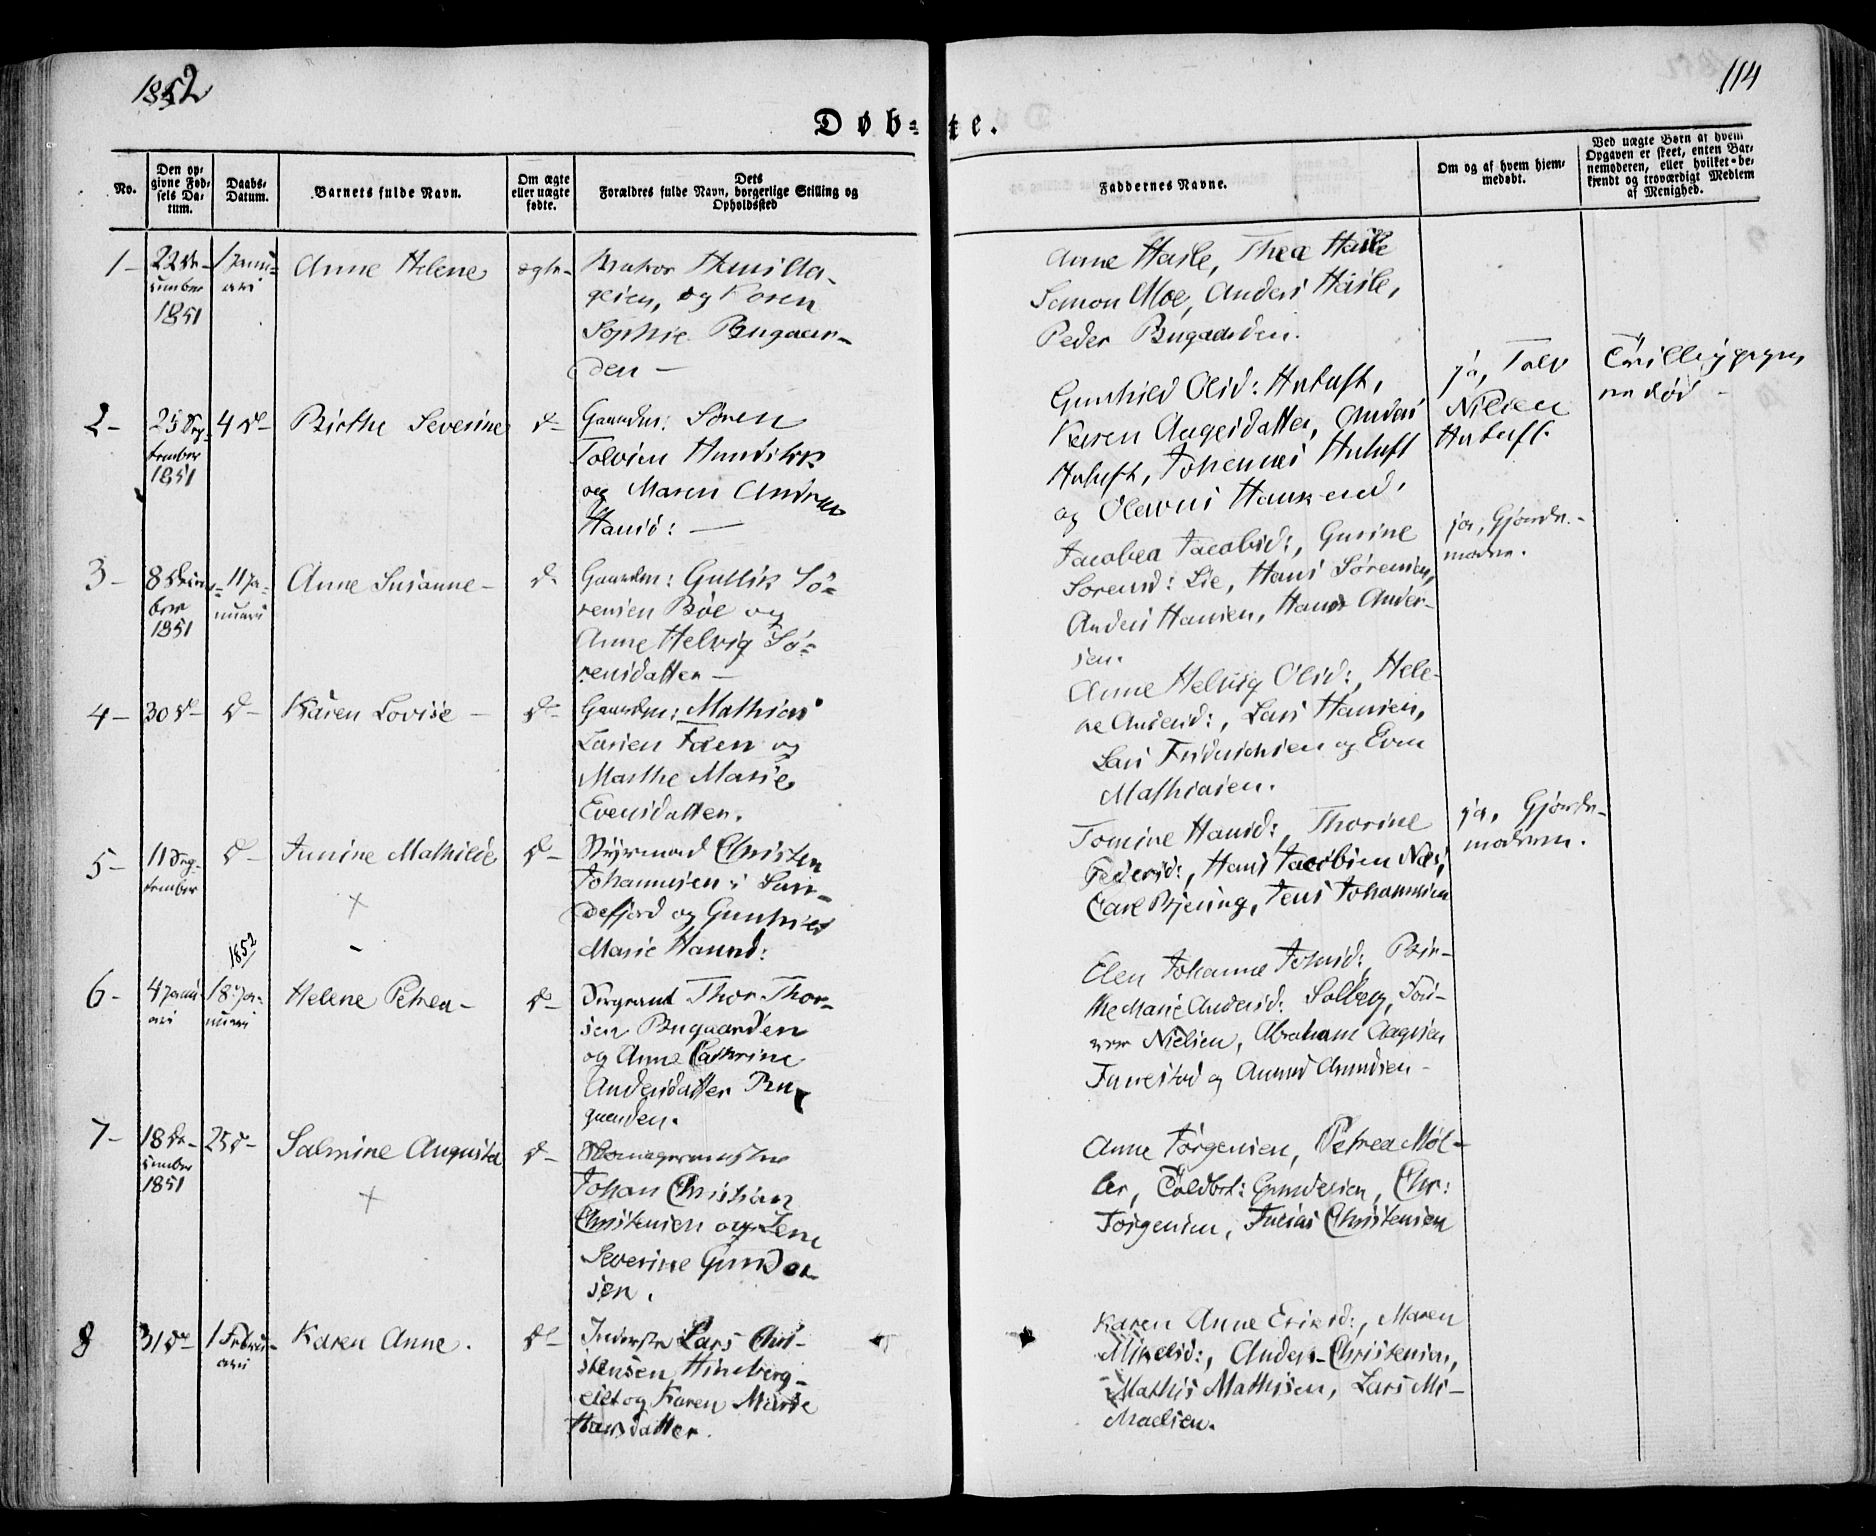 1852
114
Døb-te.
No.
Den op-
givne Fød-
sels Da-
tum.
Daabs-
Datum.
Barnets fulde Navn.
Om ægte
eller uægte
fødte.
Dets
Forældres fulde Navn, borgerlige Stilling og
Opholdssted
Faddernes Navne.
Om og af hvem hjem-
medøbt.
Ved uægte Børn af hvem
Opgaven er skeet, enten Bar-
nemoderen, eller hvilket be-
kjendt og troværdigt Medlem
af Menighed.
1- 22 De-
cember
1851
1 Janu-
ari
Anne Helene
ægte-
geien, og Karen
Sophie Bugaar-
den -
Anne Hasle, Thea Hasle
Simon Moe, Anders Hasle,
Peder Bugaarden.
2- 25 Sep-
tember
1851
4 d-
Birthe Severine
d-
Gaardm: Søren
og Maren Andrea
Hansd: -
Gunhild Olsd:
Karen Aagesdatter, Anders
Johannes
og Olavus
ja,
Nilsen
Tvilling
død -
3- 8 Decem-
ber
1851
11 Ja-
nuari
Anne Susanne-
d-
Gaardm: Gullik Sø-
rensen Bøe og
Anne Helvig Sø-
rensdatter -
Jacobea Jacobsd:, Gurine
Sørensd: Lie, Hans Sørensen,
Anders Hansen, Hans Ander-
sen.
ja, Gjorde-
moder.
4- 30 d-
d-
Karen Lovise -
d-
Gaardm: Mathias
Larsen Foen og
Marthe Marie
Evensdatter.
Anne Helvig Olsd:, Hele-
ne Andersd:, Lars Hansen,
Lars Fridrichsen og Even
Mathiasen.
5- 11 Sep-
tember
d-
Junine Mathilde
d-
Styrmand Christen
Johannesen i San-
defjord og Gunhild
Marie Hansd:
Tomine Hansd:, Thorine
Pedersd:, Hans Jacobsen Næs,
Carl Bjering, Jens Johannesen
ja, Gjorde-
moderen.
1852
6- 4 Janu-
ari
18 Ja-
nuari
Helene Petrea-
d-
Sergeant Thor Thor-
sen Bugaarden
og Anne Cathrine
Andersdatter Bu-
gaarden.
Elen Johanne Johnsd: Bir-
the Marie Andersd: Solberg,
Nielsen, Abraham Aagesen
og Amund Amundsen-
7- 18 De-
cember
1851
25 d-
Salmine Augusta
d-
Johan Christian
Christensen og Lene
Severine Gunder-
sen.
Anne Jørgensen, Petrea Møl-
ler, Coldbt: Gundersen, Chr:
Jørgensen, Julius Christensen
8
31 d-
1 Febru-
ari
Karen Anne.
d-
Inderste Lars Chri-
stensen Hineberg-
eiet og Karen Marie
Hansdatter.
Karen Anne Eriksd:, Maren
Mikelsd:, Anders Christensen,
Mathis Mathisen, Lars Mi-
chaelsen.